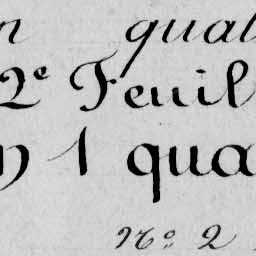 n qual
2e Feuil
n 1 qua
No. 2